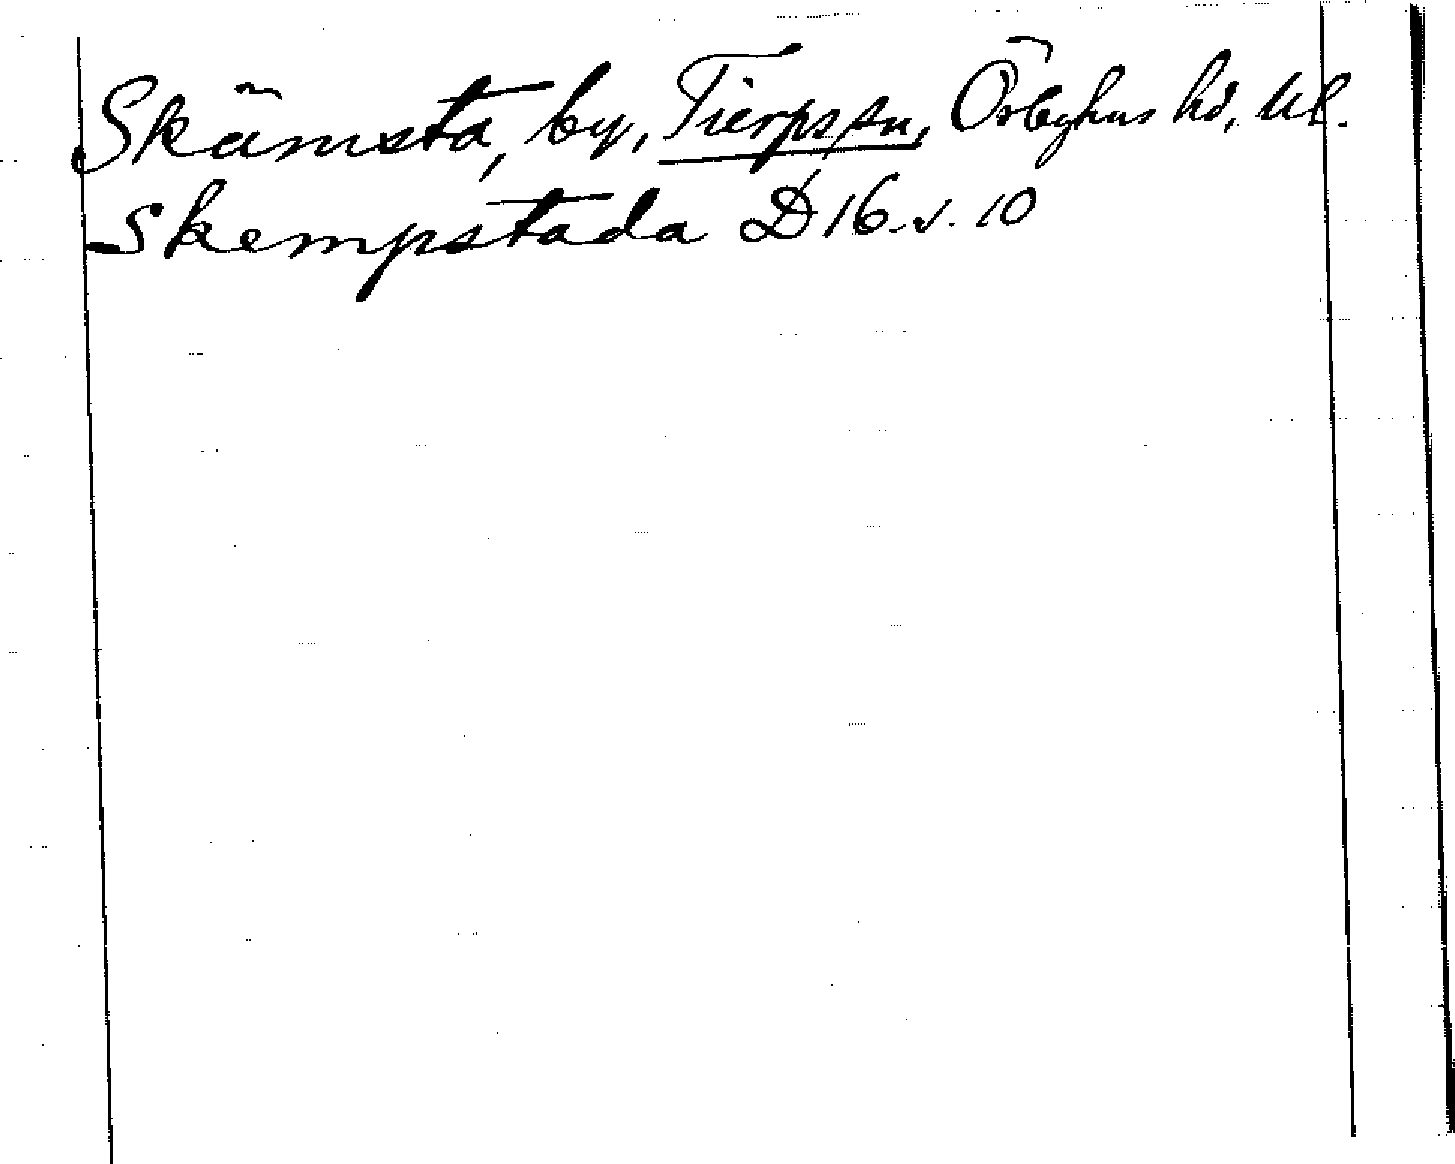 Skämsta, by, Tierps sn, Örbyhus hd, Upl.
Skempstada D 16. v. 10